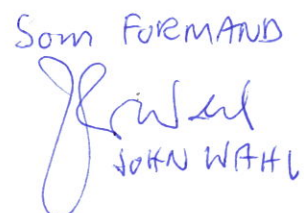 Som FORMAND
JOHN WAHL